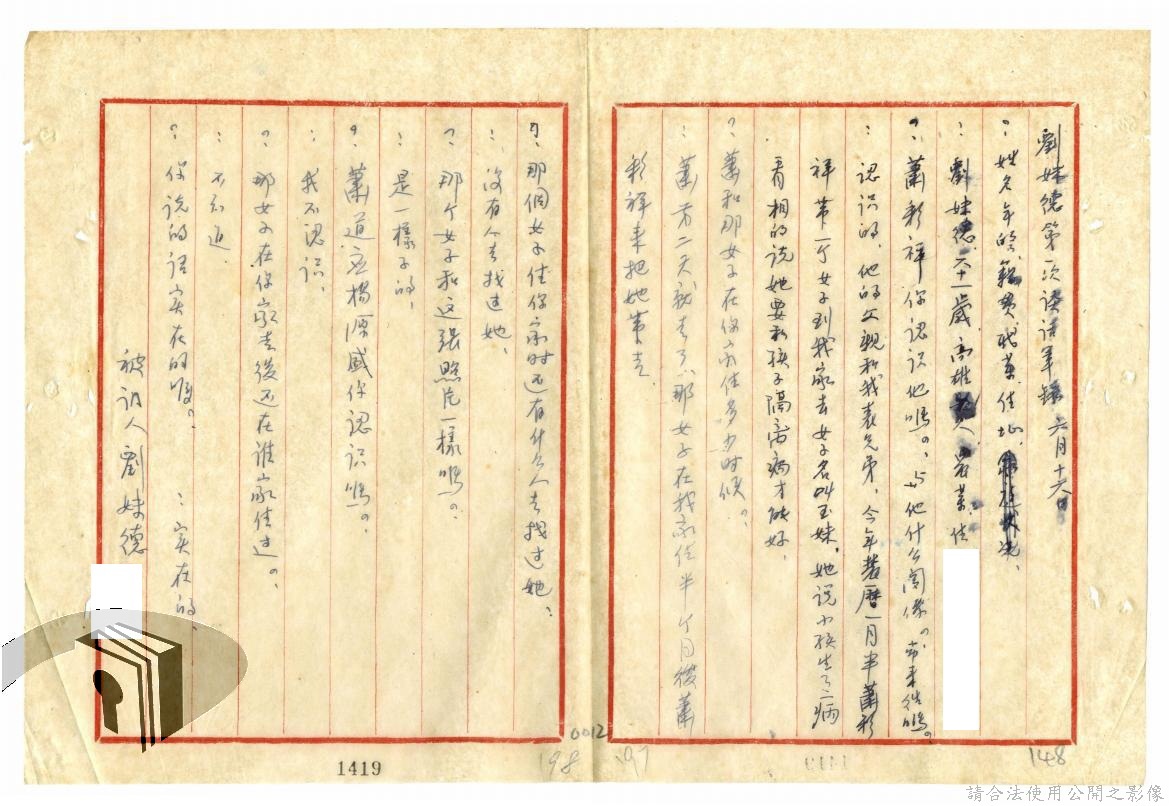 劉妹德第一次談話筆錄 六月十六日
?:姓名年齡、籍貫職業、住址、
:劉妹德 六十一歲、高雄 人 業、住
?:蕭彩祥你認识他嗎。与他什么関係。常来往嗎。
:認识的、他的父親和我表兄弟,今年農曆一月半蕭彩
祥帶一个女子到我家去女子名叫玉妹,她说小孩生了病
看相的说她要和孩子隔离病才能好,
?蕭和那女子在你家住多少时候。
:蕭第二天就走了,那女子在我家住半个月後蕭
彩祥来把她帶走.
?:那個女子住你家时还有什么人去找过她、
:没有人去找过她、
?:那个女子和这張照片一樣嗎。
:是一樣子的,
?:蕭道应楊源盛你認识嗎。
:我不認识、
?:那女子在你家走後还在谁家住过。
:不知道
?:你说的话实在的嗎。 :实在的、
被讯人劉妹德
148
197
198
0012
1419
請合法使用公開之影像